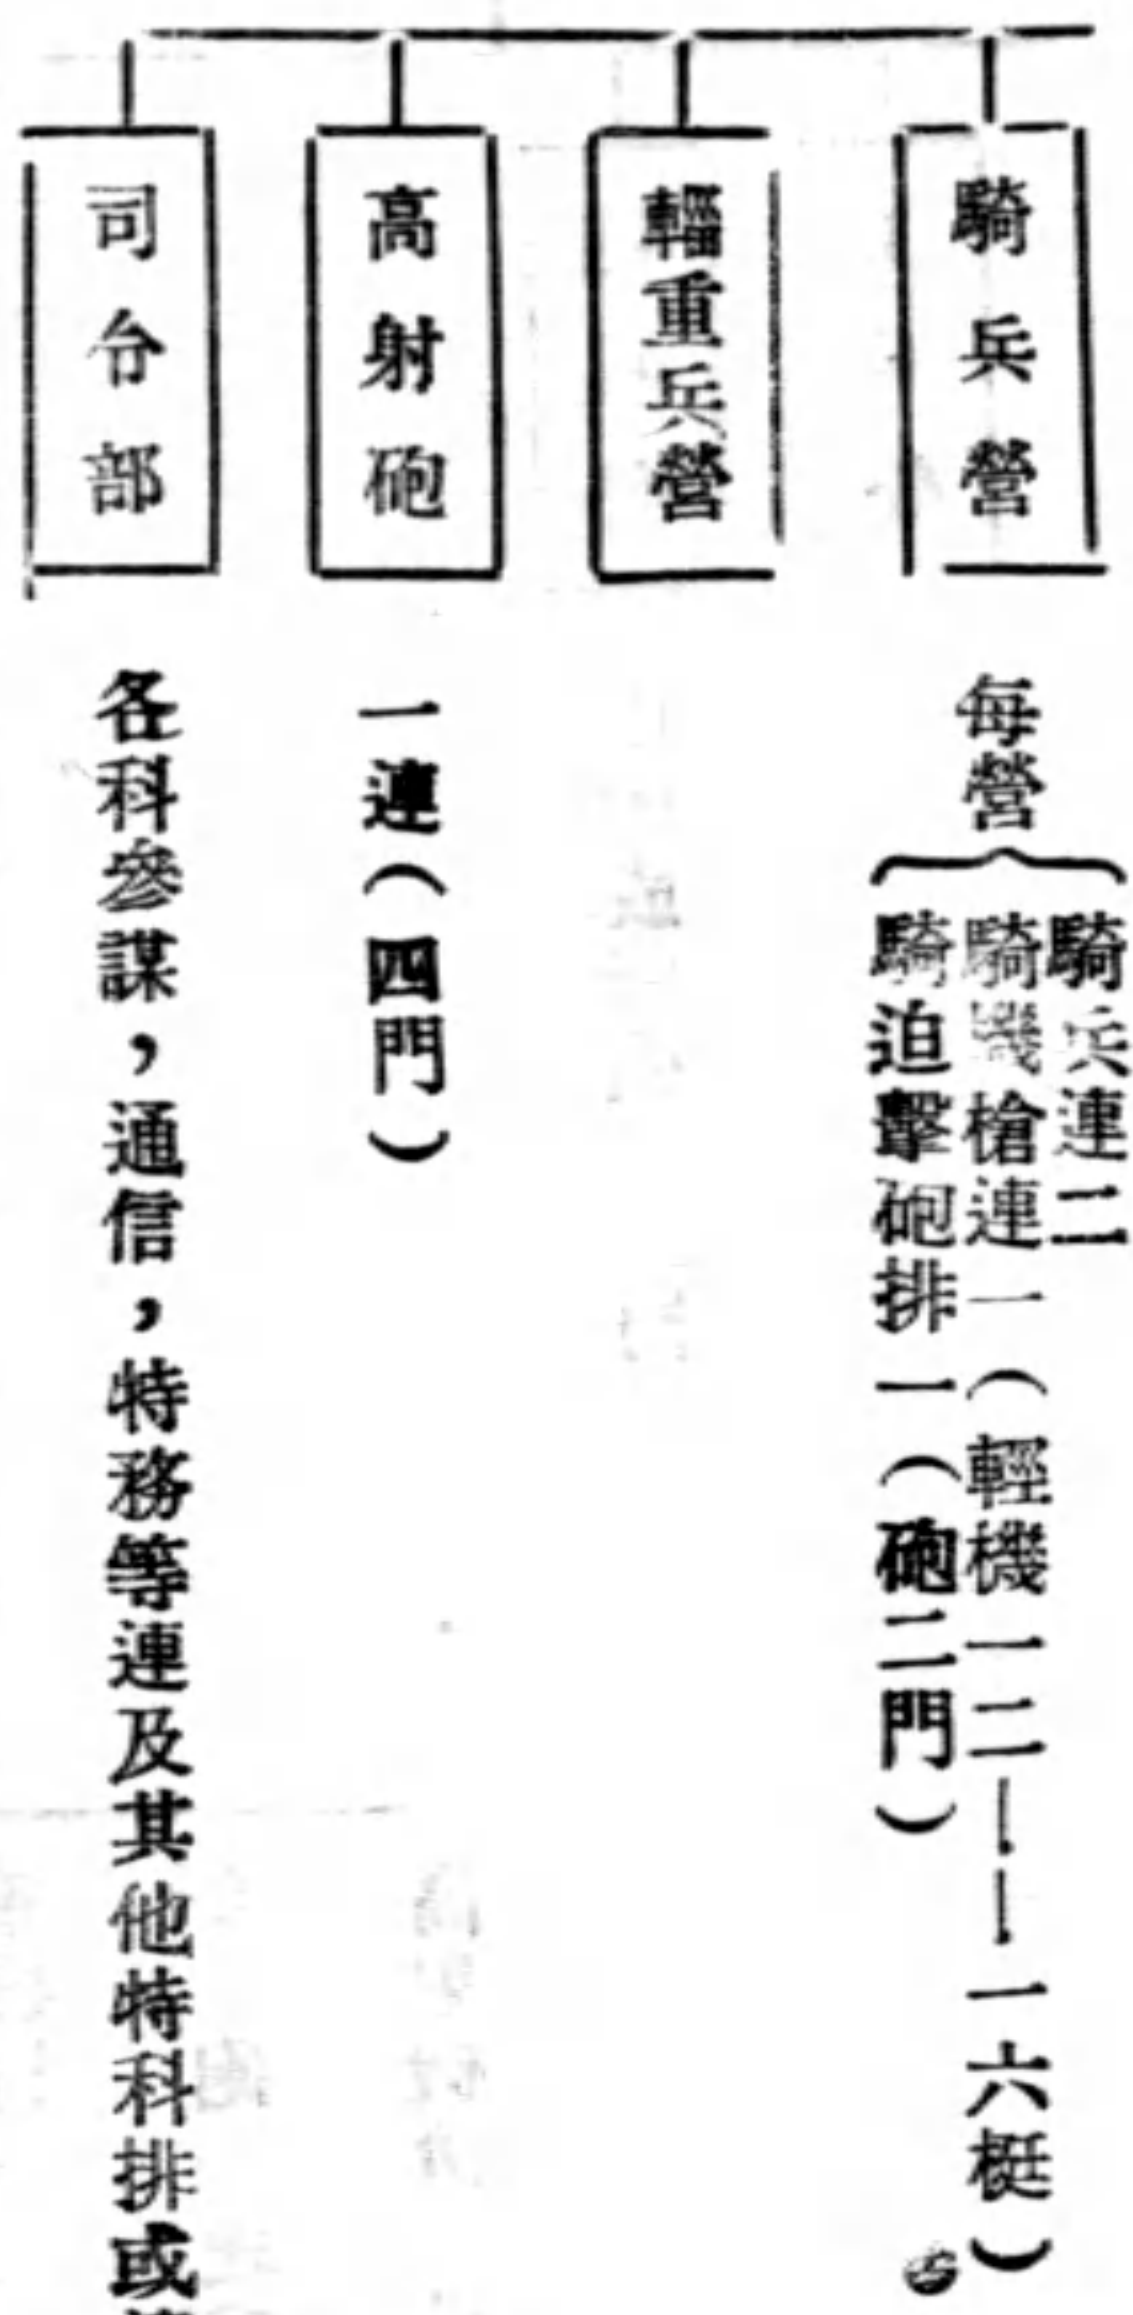 騎兵營
每營
騎兵連二
騎機槍連一（輕機一二——一六梃）
騎迫擊砲排一（砲二門）
輜重兵營
高射砲
一連（四門）
司令部
各科參謀，通信，特務等連及其他特科排或